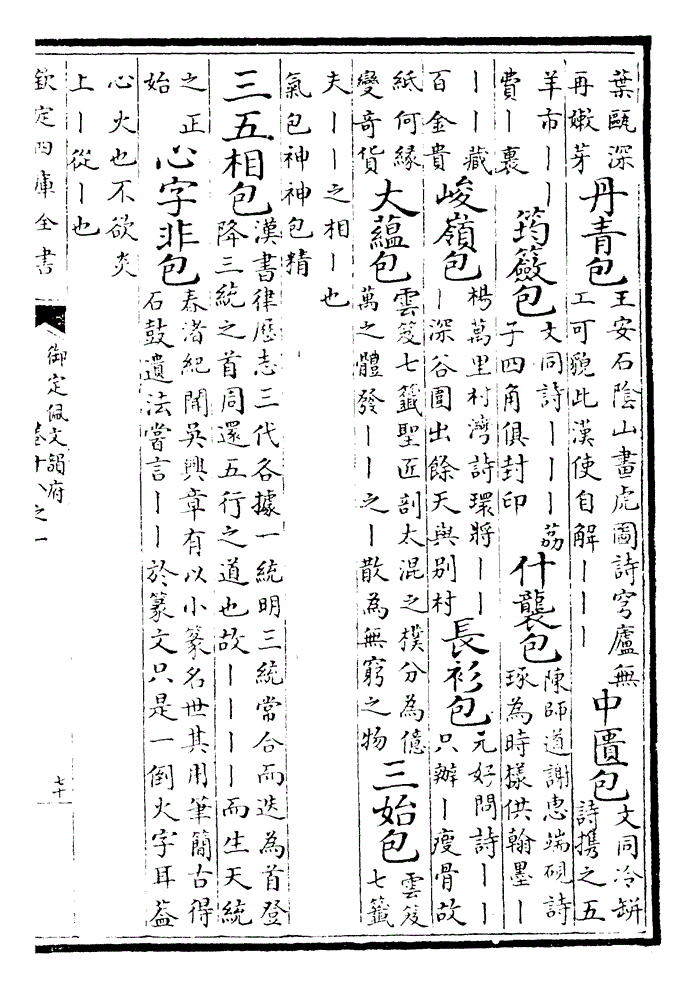 葉甌深再嫩芽丹青包王安石陰山畫虎圖詩穹廬無工可貌此漢使自解丨丨丨中匱包文同冷缾詩携之五
羊市丨丨費丨裹筠籢包文同詩丨丨丨茘子四角俱封印什襲包陳師道謝惠端硯詩琢為時樣供翰墨丨
丨丨藏百金貴峻嶺包楊萬里村灣詩環將丨丨丨深谷圍出餘天與别村長衫包元好問詩丨丨只辦丨瘦骨故
紙何緣變奇貨大蘊包雲笈七籤聖匠剖太混之樸分為億萬之體發丨丨之丨散為無窮之物三始包雲笈七籤
夫丨丨之相丨也氣包神神包精
三五相包漢書律歴志三代各據一統明三統常合而迭為首登降三統之首周還五行之道也故丨丨丨丨而生天統
之正始心字非包春渚紀聞吳興章有以小篆名世其用筆簡古得石鼓遺法嘗言丨丨於篆文只是一倒火字耳葢
心火也不欲炎上丨從丨也
欽定四庫全書
御定佩文韻府
卷十八之一
七十